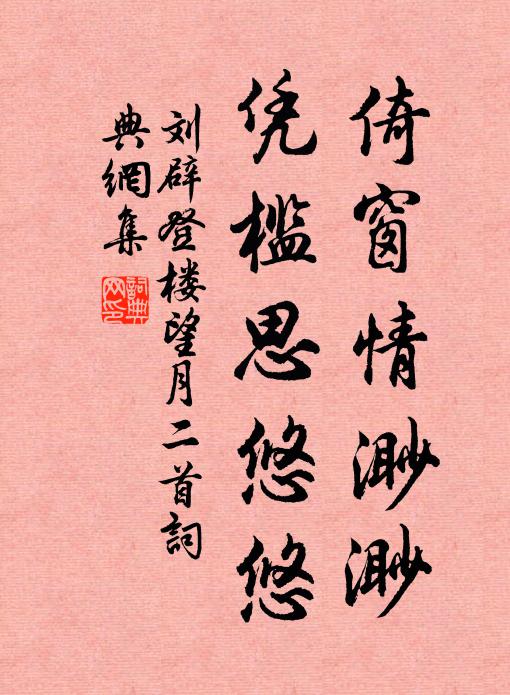 倚窗情渺渺
凭槛思悠悠
刘辟登楼望月二首詞
典網集
詞典
网印